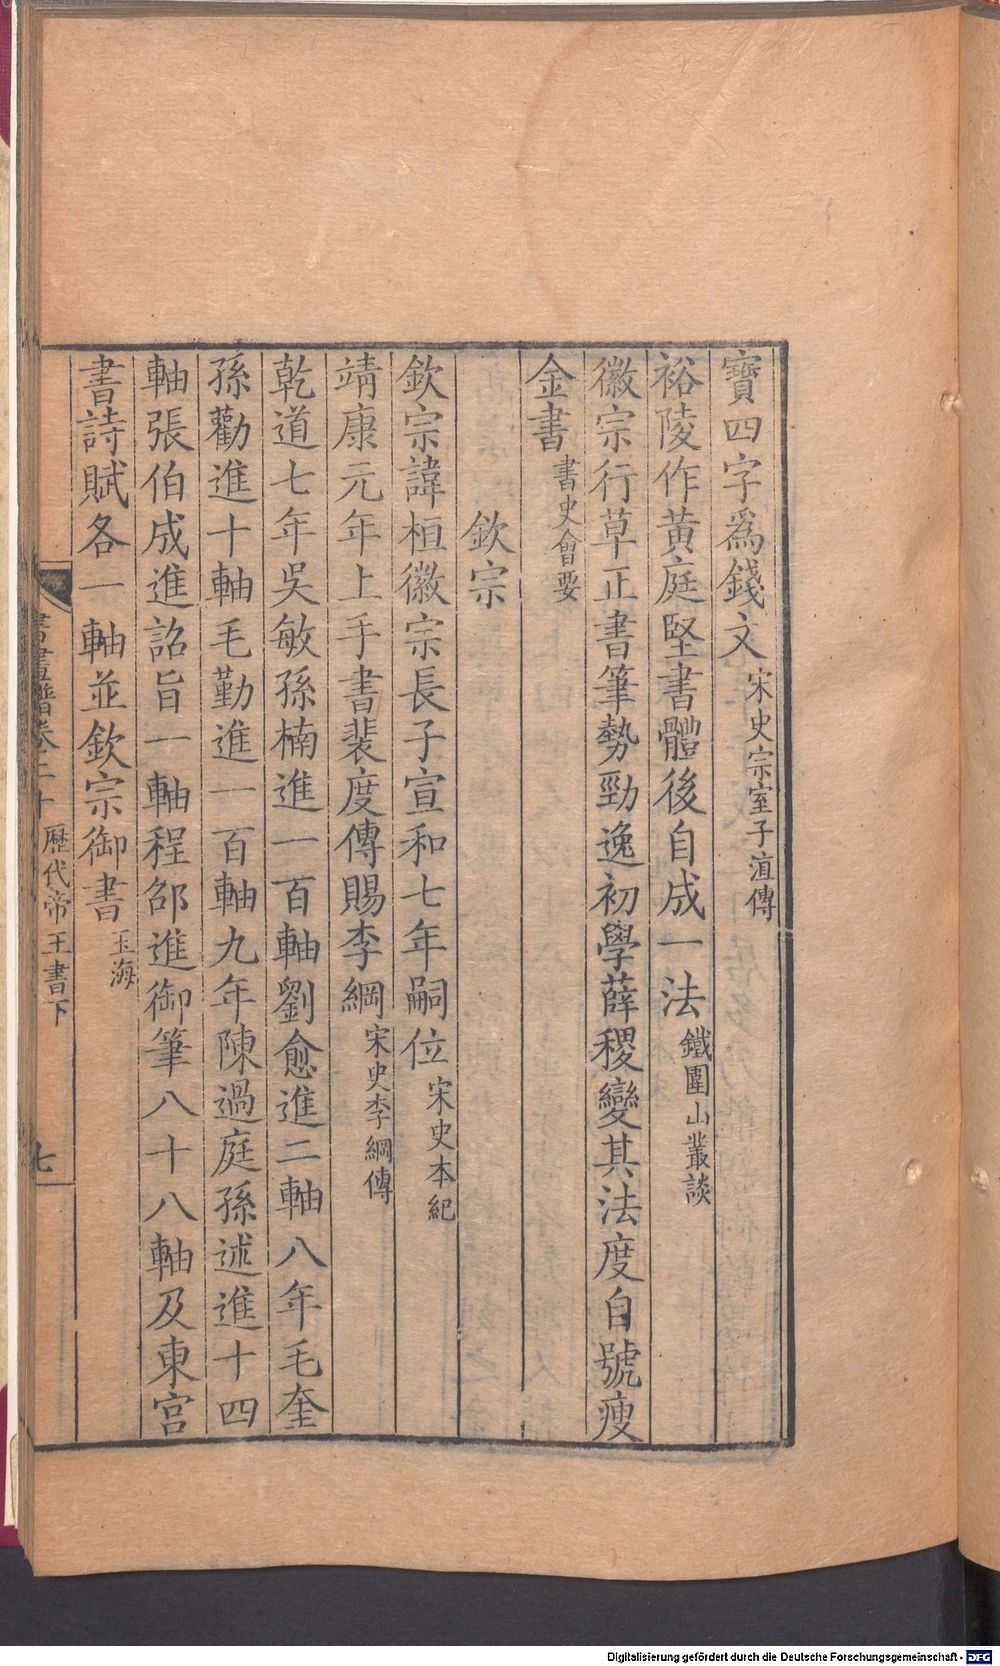 寶四字爲錢文宋史宗室子淔傳
裕陵作黄庭堅書體後自成一法鐵圍山叢談
徽宗行草正書筆勢勁逸初學薛稷變其法度自號瘦
金書書史會要
欽宗
欽宗諱桓徽宗長子宣和七年嗣位宋史本紀
靖康元年上手書裴度傳賜李綱宋史李綱傳
乾道七年吳敏孫楠進一百軸劉愈進二軸八年毛奎
孫勸進十軸毛勤進一百軸九年陳過庭孫述進十四
軸張伯成進詔旨一軸程邵進御筆八十八軸及東宮
書詩賦各一軸並欽宗御書玉海
書畫譜卷二十 歷代帝王書下 七
Digitalisierung gefördert durch die Deutsche Forschungsgemeinschaft - DFG